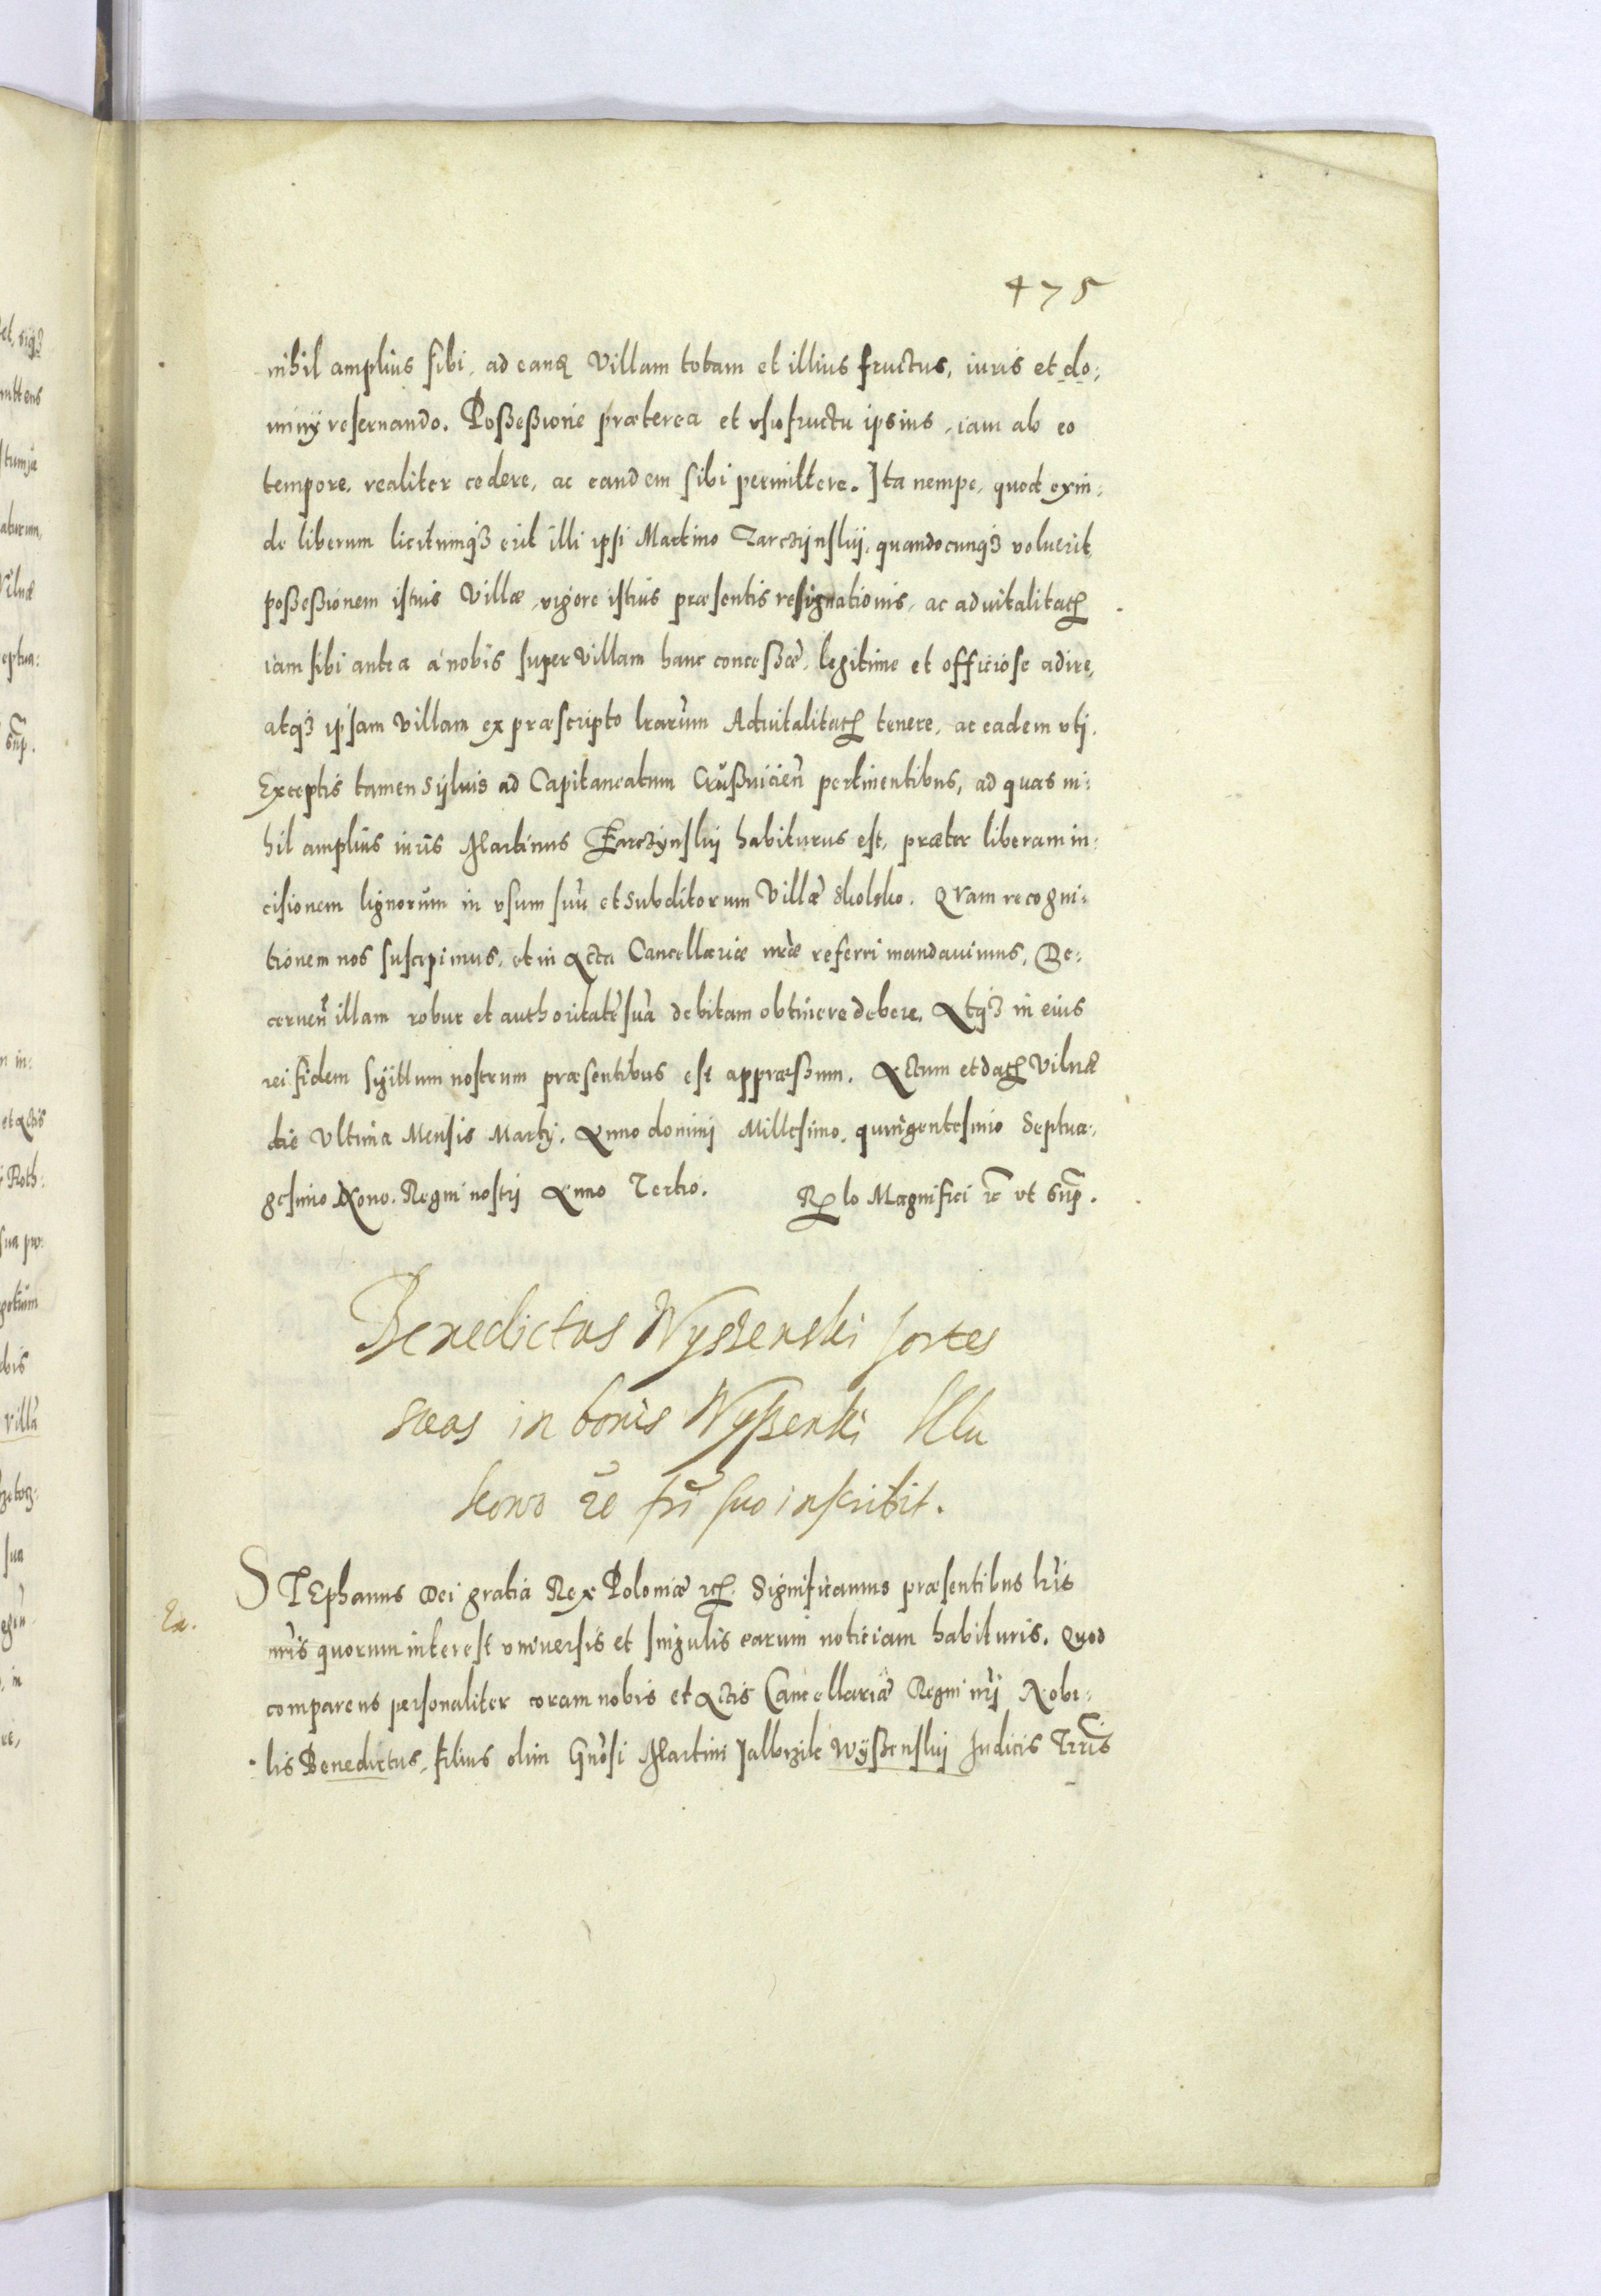 475
nihil amplius sibi, ad eanq Villam totam et illius fructus, iuris et do:
minÿ reseruando. Poßeßione præterea et vsufructu ipsius, iam ab eo
tempore, realiter cedere, ac eandem sibi permittere. Ita nempe, quod exin:
de liberum licitumq3 erit illi ipsi Martino Tarczÿnskij, quandocunq3 voluerit,
poßeßionem istius Villæ, vigore istius præsentis resignationis, ac aduitalitatꝭ
iam sibi antea á nobis super Villam hanc conceßæ, legitime et officiose adire,
atq3 ipsam Villam ex præscripto lrarum Aduitalitatꝭ tenere, ac eadem vtj.
Exceptis tamen Sÿluis ad Capitaneatum Crußuicien̄ pertinentibus, ad quas ni:
hil amplius iuris Martinus Tarczÿnskij habiturus est, præter liberam in:
cisionem lignorum in vsum suū et Subditorum Villæ Skolsko. Quam recogni:
tionem nos suscepimus, et in Acta Cancellariæ nr̄æ referri mandauimus, De:
cernen̄ illam robur et authoritatē suā debitam obtinere debere. Atq3 in eius
rei fidem Sigillum nostrum præsentibus est appræßum. Actum et datꝭ Vilnæ
die Vltima Mensis Martÿ. Anno dominj Millesimo, quingentesimo Septua:
gesimo Nono. Regni nostrj Anno Tertio. Rₑlo Magnifici rc vt Sup̄.
Benedictus Wyssenski sortes
suas in bonis Wyßenki Klu
kowo rc fri suo inscribit.
STEphanus Dei gratia Rex Poloniæ rcꝭ. Significamus præsentibus lr̄is
Ex.
nr̄is quorum interest vniuersis et singulis earum noticiam habituris. Quod
comparens personaliter coram nobis et Actis Cancellariæ Regni nr̄j Nobi:
lis Benedictus, filius olim Gn̄osi Martini Jalbrzik Wÿßenskij Judicis Trr̄is